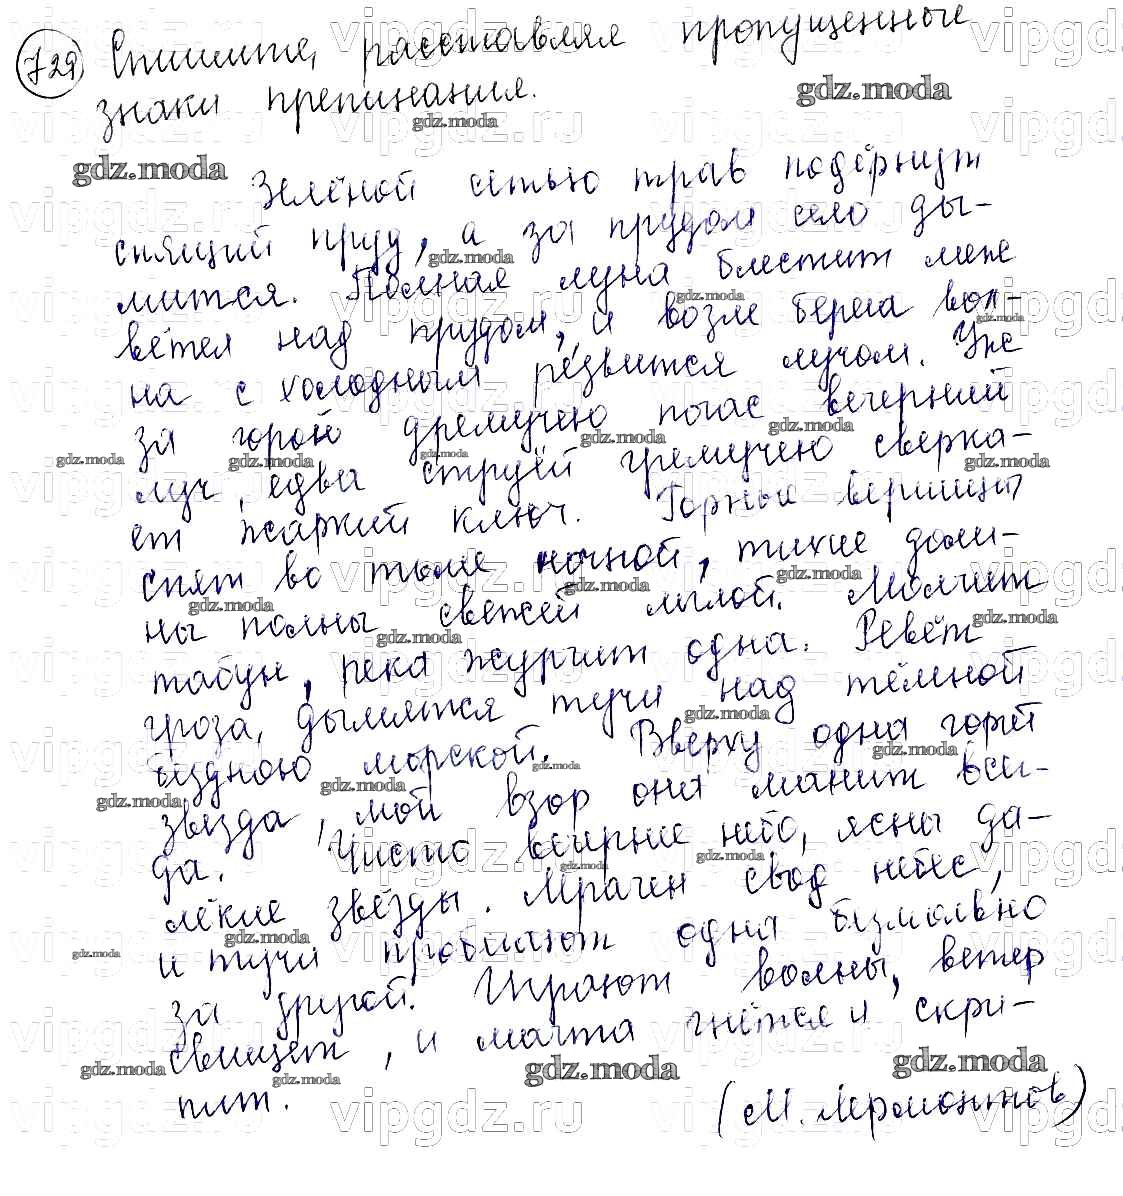 729 Спишите, расставляя пропущенные
знаки препинания.
Зелёной сетью трав подёрнут
спящий пруд, а за прудом село ды-
мится. Полная луна блестит меж
ветел над прудом, и возле берега вол-
на с холодным резвится лучом. Уже
за горой дремучею погас вечерний
луч, едва струёй гремучею сверка-
ет жаркий ключ. Горные вершины
спят во тьме ночной, тихие доли-
ны полны свежей мглой. Молчит
табун, река журчит одна. Ревёт
гроза, дымятся тучи над тёмной
бездною морской. Вверху одна горит
звезда, мой взор она манит всег-
да. Чисто вечернее небо, ясны да-
лёкие звёзды. Мрачен свод небес,
и тучи пробегают одна безмолвно
за другой. Играют волны, ветер
свищет, и мачта гнётся и скри-
пит.
(М. Лермонтов)
gdz.moda
vipgdz.ru